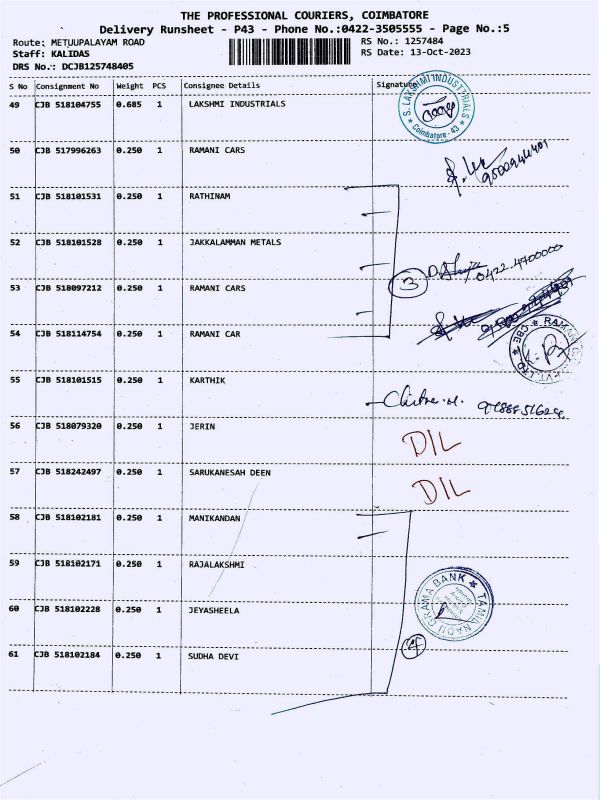 THE PROFESSIONAL COURIERS, COIMBATORE
Delivery Runsheet - P43 - Phone No.:0422-3505555 - Page No.:5
Route: METUUPALAYAM ROAD RS No.: 1257484
Staff: KALIDAS RS Date: 13-Oct-2023
DRS No.: DCJB125748405
S No Consignment No Weight PCS Consignee Details Signature
49 CJB 518104755 0.685 1 LAKSHMI INDUSTRIALS
S. LAKSHMI INDUSTRIALS
★ Coimbatore - 43 ★
50 CJB 517996263 0.250 1 RAMANI CARS
51 CJB 518101531 0.250 1 RATHINAM
52 CJB 518101528 0.250 1 JAKKALAMMAN METALS
0422-4700000
53 CJB 518097212 0.250 1 RAMANI CARS
3
54 CJB 518114754 0.250 1 RAMANI CAR
55 CJB 518101515 0.250 1 KARTHIK
56 CJB 518079320 0.250 1 JERIN
D/L
57 CJB 518242497 0.250 1 SARUKANESAH DEEN
D/L
58 CJB 518102181 0.250 1 MANIKANDAN
59 CJB 518102171 0.250 1 RAJALAKSHMI
TAMIL NADU GRAMA BANK
60 CJB 518102228 0.250 1 JEYASHEELA
4
61 CJB 518102184 0.250 1 SUDHA DEVI